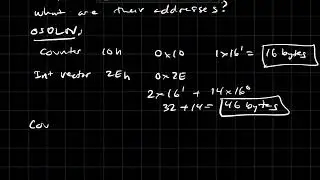 what are their addresses?
Counter 10h 0x10 1x16¹ = 16 bytes
Int vector 2Eh 0x2E
2x16¹ + 14x16⁰
32 + 14 = 46 bytes
Cou